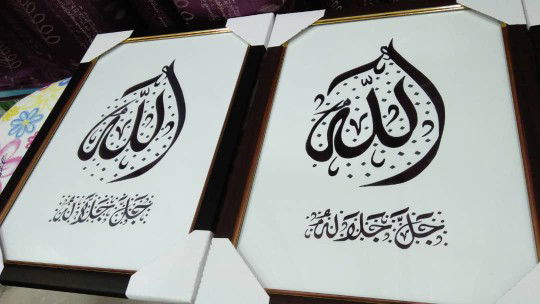 الله
جل جلاله
الله
جَلَّ جَلَالُهُ